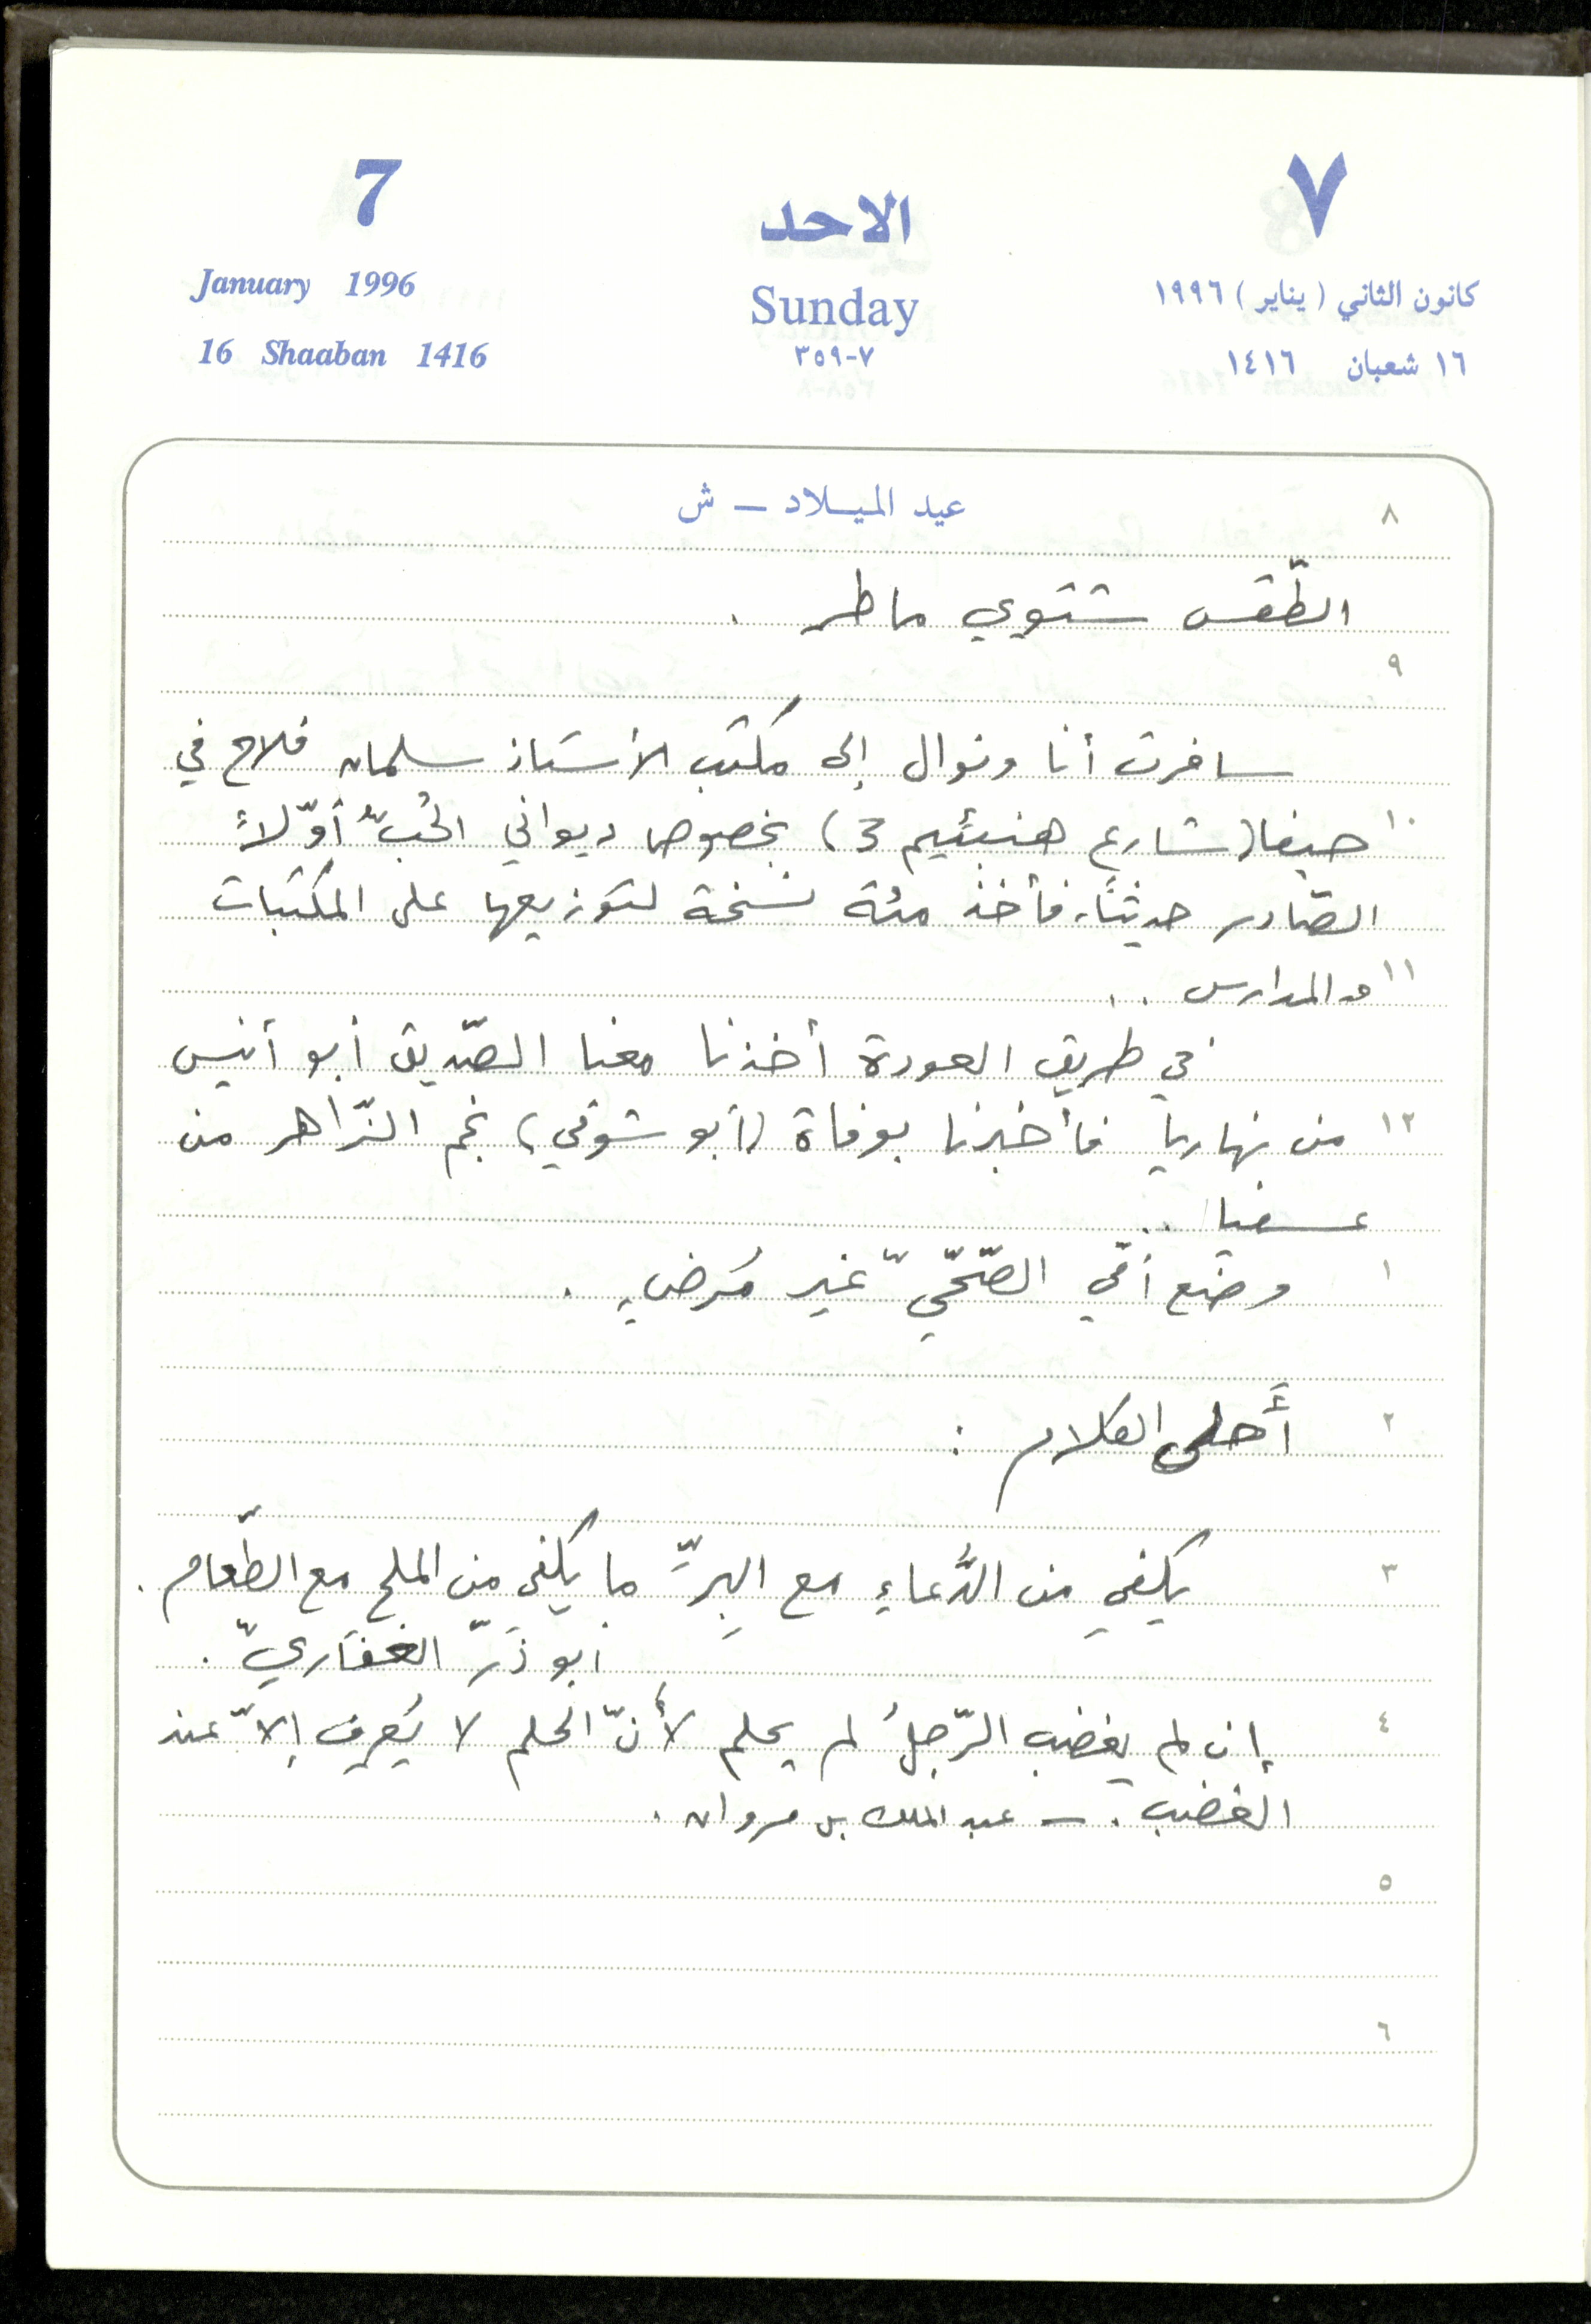 7
الاحد
٧
January 1996
Sunday
كانون الثاني ( يناير ) ١٩٩٦
16 Shaaban 1416
٣٥٩-٧
١٦ شعبان ١٤١٦
٨ عيد الميلاد – ش
الطّقس شتوي ماطر .
٩
سافرت أنا ونوال إلى مكتب الأستاذ سلمان فلاح في
١٠ حيفا (شارع هنبئيم 3) بخصوص ديواني الحُبّ أوّلاً
الصّادر حديثًا، فأخذ مئة نسخة لتوزيعها على المكتبات
١١ والمدارس ..
في طريق العودة أخذنا معنا الصّديق أبو أنيس
١٢ من نهاريا فأخبرنا بوفاة (أبو شوقي) نجم الزّاهر من
عسفيا ..
١ وضع أمّي الصّحّيّ غير مُرضٍ .
٢ أَحلى الكلام :
٣ يكفي من الدُّعاءِ مع البِرِّ ما يكفي من الملح مع الطّعام .
أبو ذَرّ الغفَاريّ .
٤ إن لم يغضب الرّجلُ لم يحلم لأنّ الحلم لا يُعرف إلاّ عند
الغضب . – عبد الملك بن مروان .
٥
٦